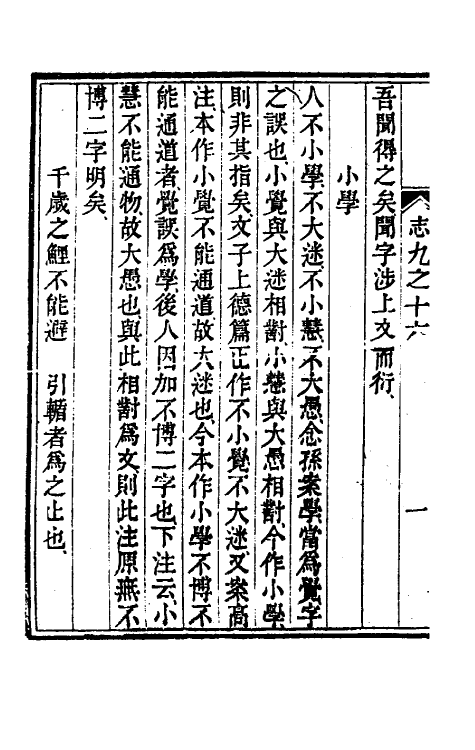 志九之十六
一
吾聞得之矣聞字涉上文而衍、
小學
人不小學、不大迷、不小慧、不大愚、念孫案學當爲覺字
之誤也、小覺與大迷相對、小慧與大愚相對、今作小學、
則非其指矣、文子上德篇正作不小覺不大迷、又案高
注本作小覺不能通道故大迷也、今本作小學不博不
能通道者、覺誤爲學、後人因加不博二字也、下注云、小
慧不能通物、故大愚也、與此相對爲文、則此注原無不
博二字明矣、
千歲之鯉不能避　引輴者爲之止也、